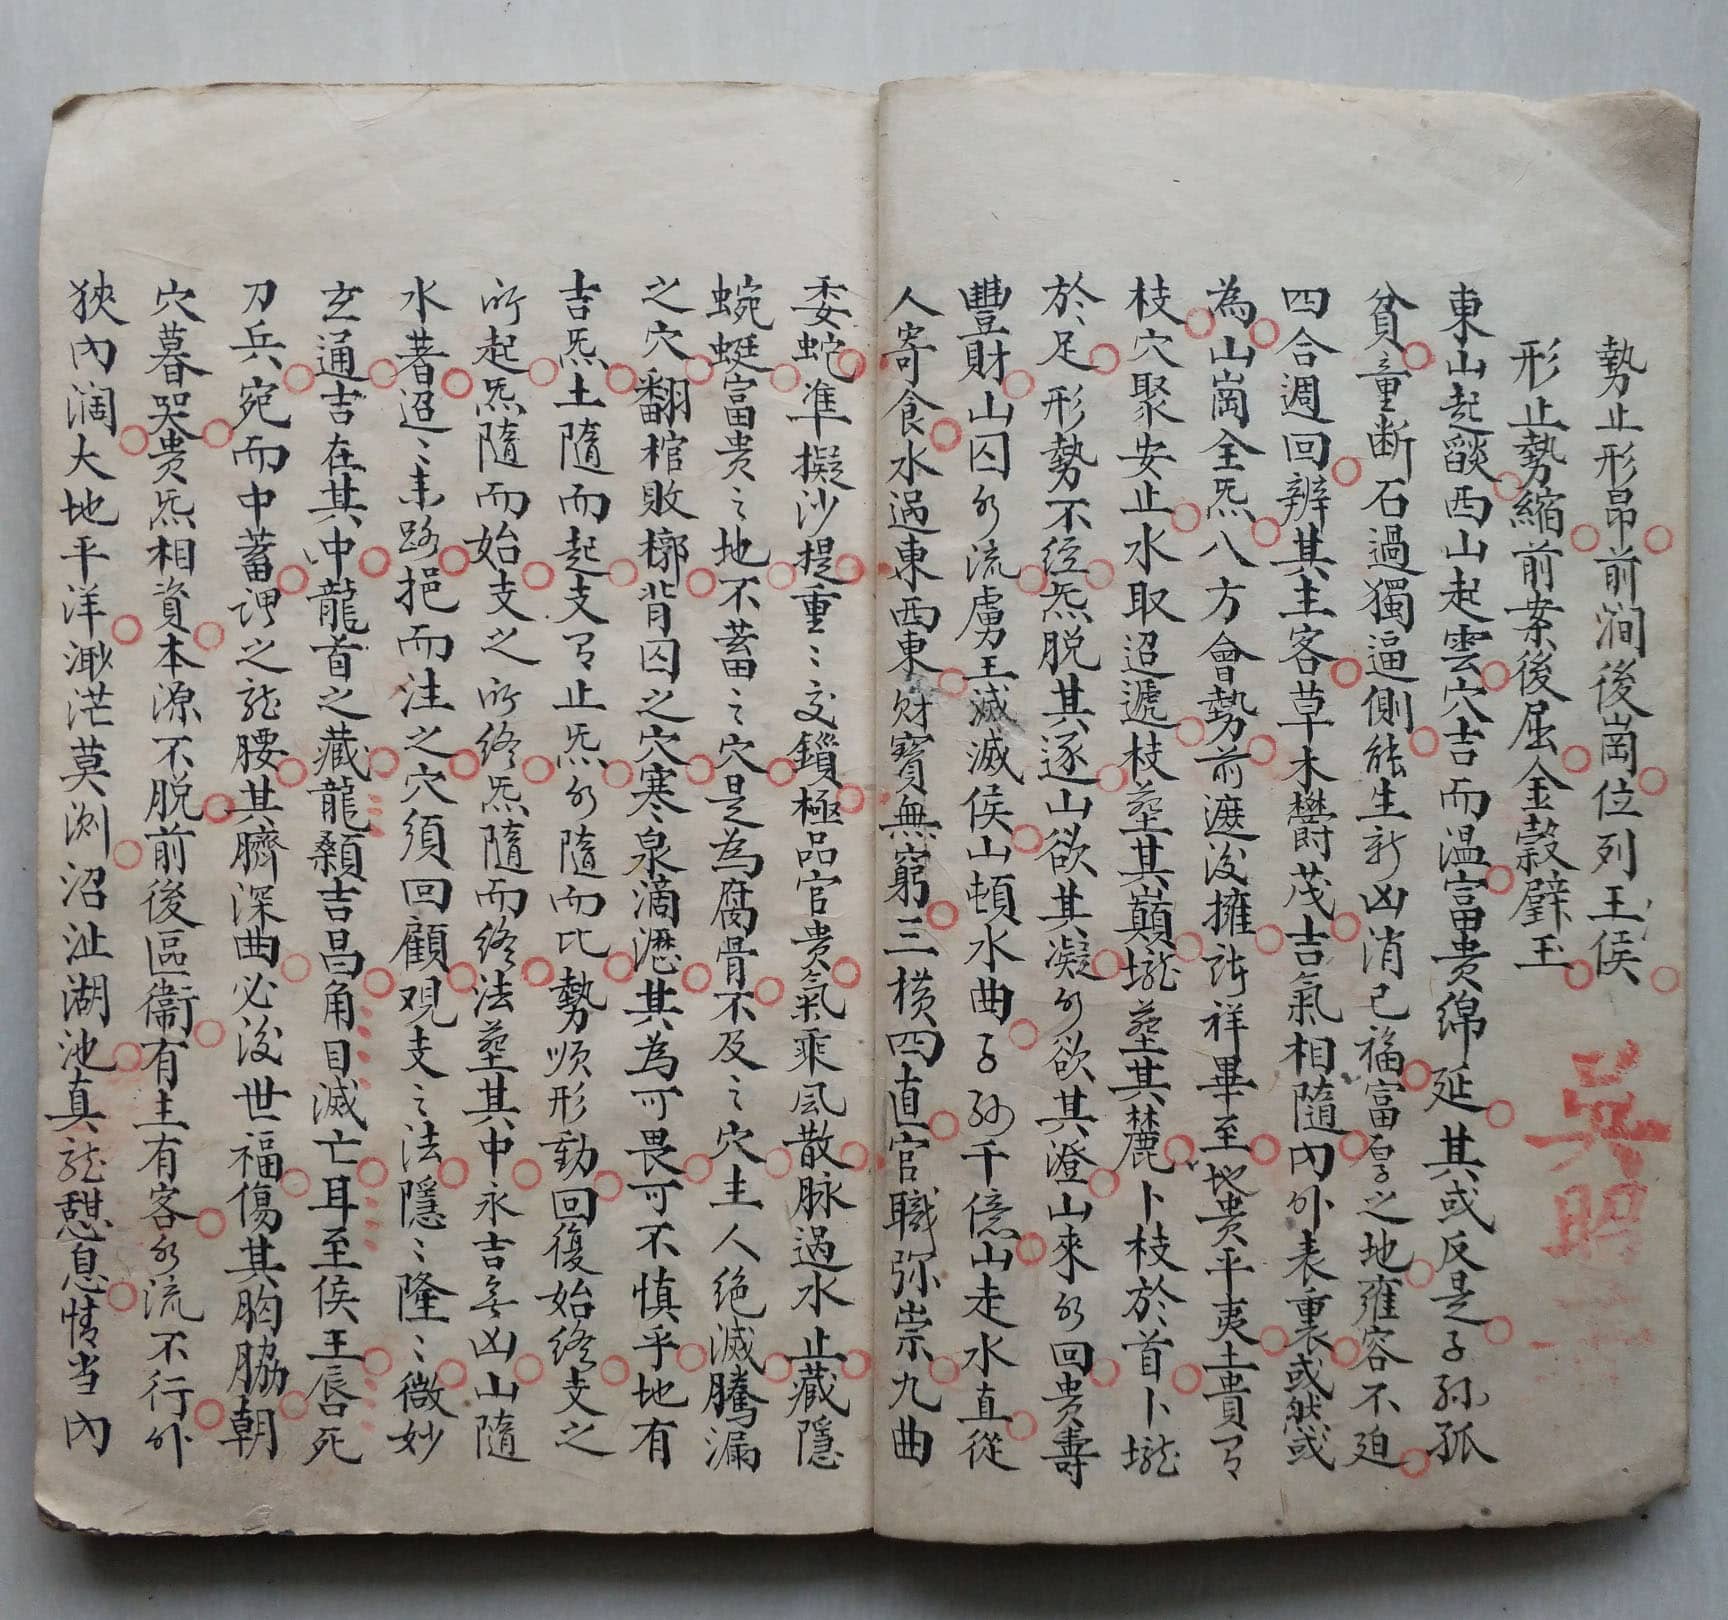 勢止形昂前澗後崗位列王侯
形止勢縮前案後屈金穀璧玉
東山起談西山起雲穴吉而温富贵綿延其或反是子孫孤
貧童断石過獨逼側能生新凶消已福富厚之地雍容不廹
四合週回辨其主客草木欝茂吉氣相隨內外表裏或然或
為山崗全炁八方會勢前遮後擁諸祥畢至地贵平夷土貴有
枝穴聚安止水取迢遞枝塟其巔壠塟其麓卜枝於首卜壠
於足形勢不経炁脱其逐山欲其凝水欲其澄山來水回贵壽
豐財山囚水流虜王滅滅侯山頓水曲子孫千億山走水直從
人寄食水過東西東财寳無窮三横四直官職弥崇九曲
委蛇準擬沙提重〻交鎖極品官贵氣乘風散脉過水止藏隱
蜿蜓富贵之地不蓄之穴是為腐骨不及之穴主人絶滅騰漏
之穴翻棺敗槨背囚之穴寒泉滴瀝其為可畏可不慎乎地有
吉炁土隨而起支有止炁水隨而比勢顺形動回復始終支之
所起炁隨而始支之所終炁隨而終法塟其中永吉無凶山隨
水著迢〻来路挹而注之穴須回顧观支之法隱〻隆〻微妙
玄通吉在其中龍首之藏龍顙吉昌角目滅亡耳至侯王唇死
刀兵宛而中蓄謂之龍腰其臍深曲必後世福傷其胸脇朝
穴暮哭贵炁相資本源不脱前後區衞有主有客水流不行外
狹內濶大地平洋渺茫莫測沼沚湖池真龍憩息情当內
吳